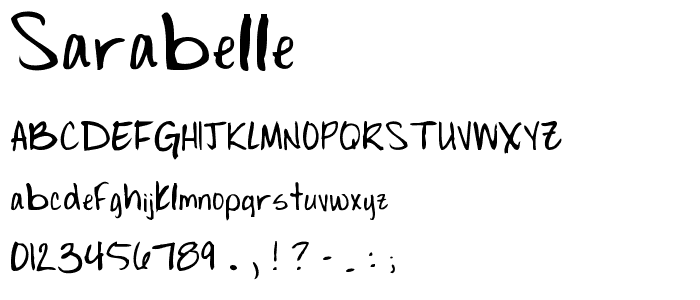 Sarabelle
ABCDEFGHIJKLMNOPQRSTUVWXYZ
abcdefghijklmnopqrstuvwxyz
0123456789 . , ! ? - _ : ;